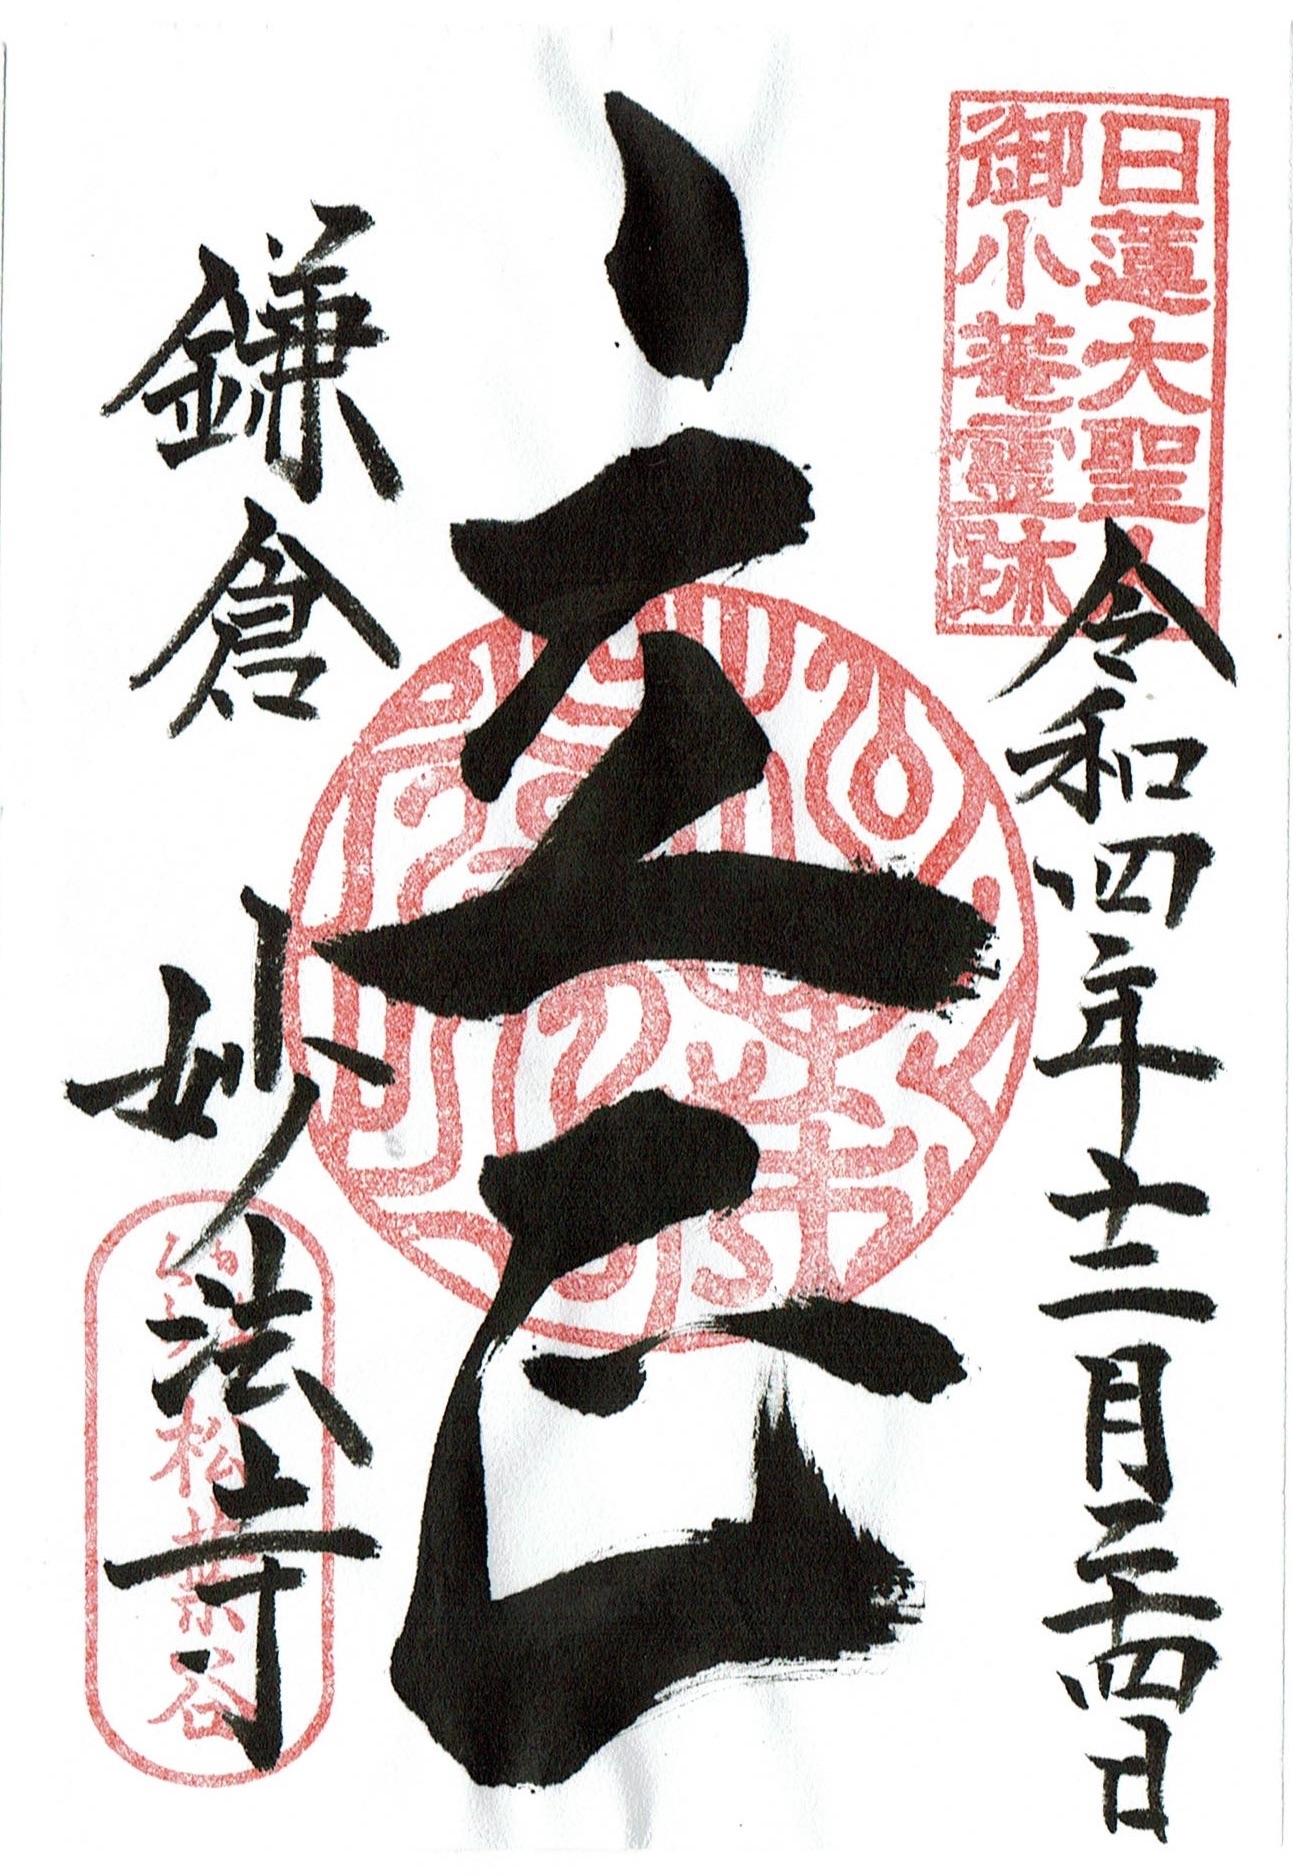 日蓮大聖人
御小菴霊跡
令和四年十二月二十四日
立正
鎌倉 妙法寺
松葉谷